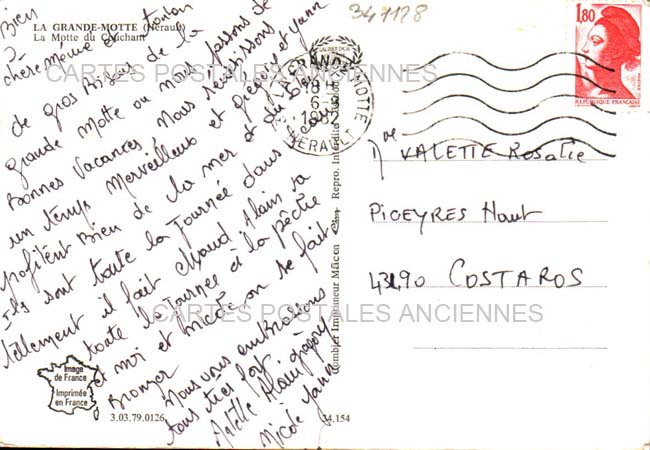 LA GRANDE-MOTTE (Hérault)
La Motte du Couchant
341128
Bien
chère mémée et tonton
de gros Bisous de la
grande Motte ou nous passons de
Bonnes Vacances. Nous
un temps Merveilleux et grégory et yann
profitent Bien de la mer et du
Ils sont toute la journée dans
tellement il fait chaud. Alain va
toute la journée à la pêche
et moi et on se fait
Bronzer
Nous vous embrassons
tous très fort.
Alain grégory
Nicole yann
Image
de France
Imprimée
en France
3.03.79.0126
34.154
Combier Imprimeur Mâcon
Repro. Interdite
LA GRANDE MOTTE
18 H
6-8
1982
HERAULT
1,80
REPUBLIQUE FRANÇAISE
Me VALETTE Rosalie
PICEYRES Haut
43490 COSTAROS
CARTES POSTALES ANCIENNES
CARTES POSTALES ANCIENNES